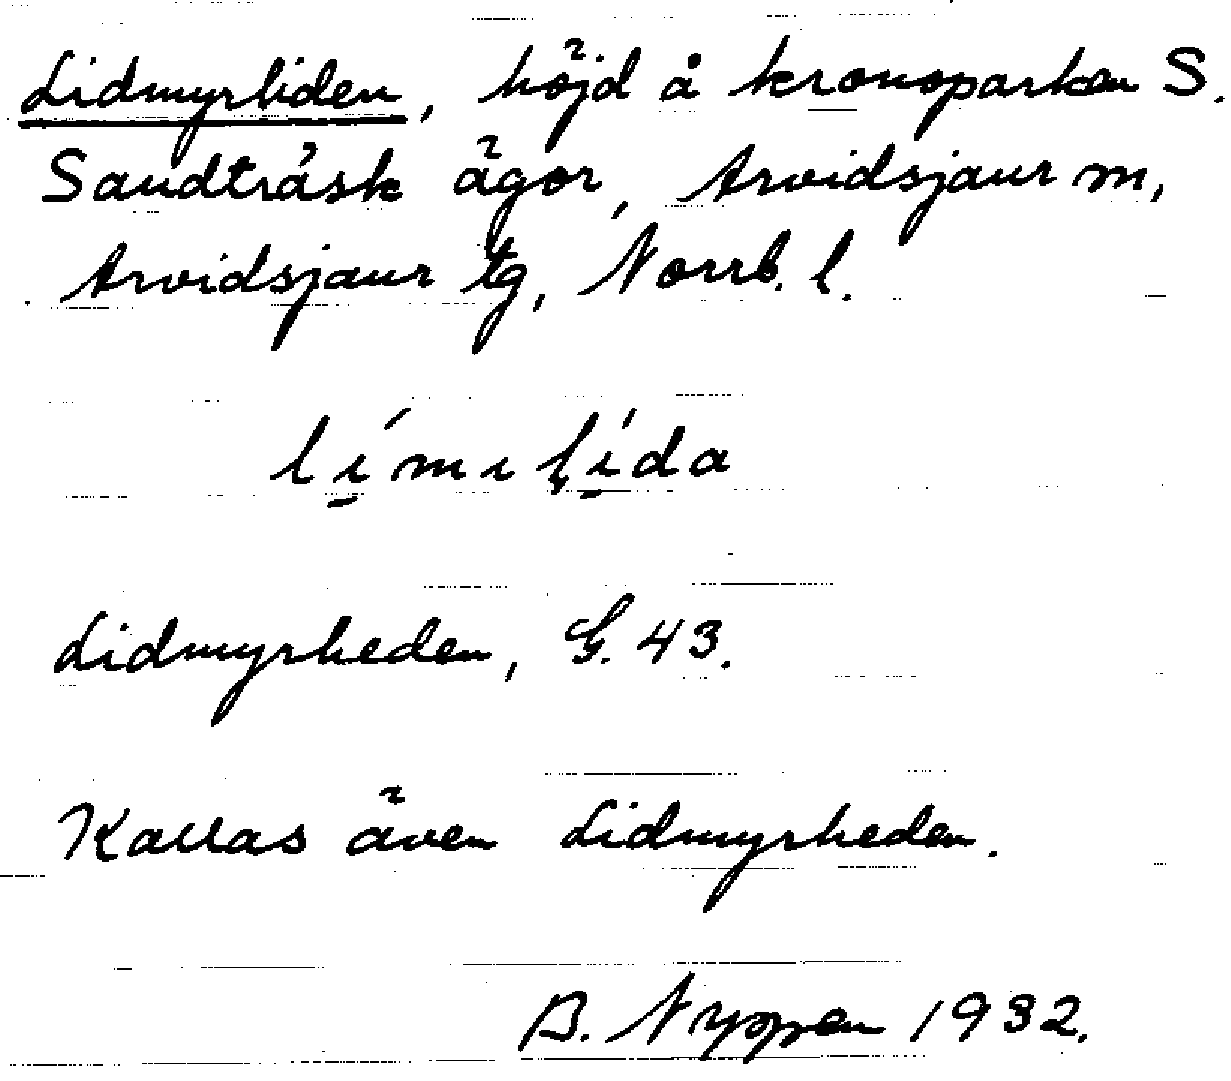 Lidmyrliden, höjd å kronoparken S.
Sandträsk ägor, Arvidsjaur m,
Arvidsjaur tg, Norrb. l.
li̱´mılí̱da
Lidmyrheden, G. 43.
Kallas även Lidmyrheden.
B. Nyppen 1932.